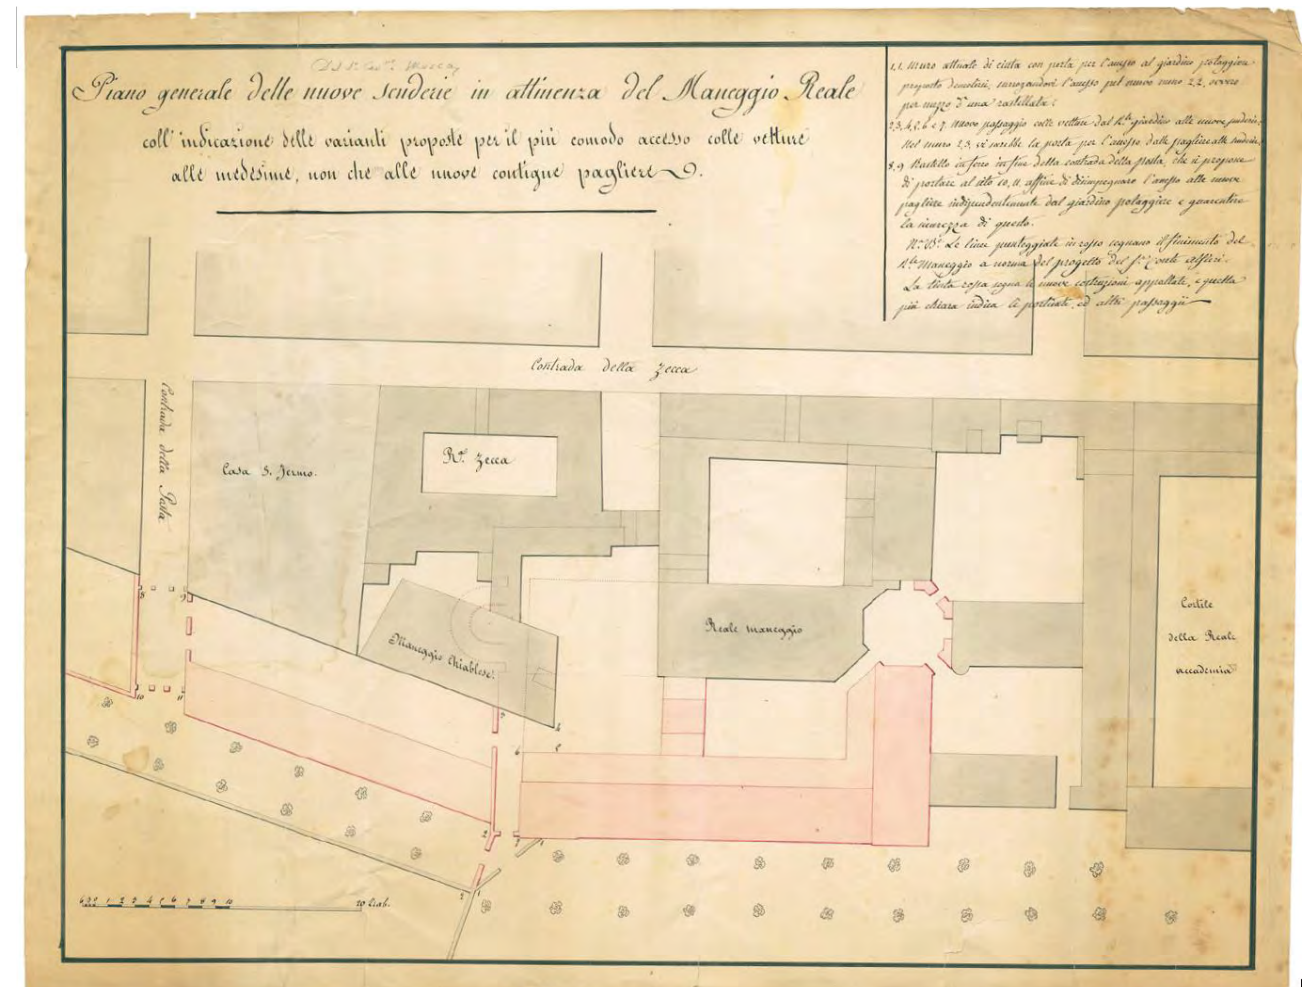 Piano generale delle nuove scuderie in attinenza del Maneggio Reale
coll'indicazione delle varianti proposte per il più comodo accesso colle vetture
alle medesime, non che alle nuove contigue pagliere.
1,1. Muro attuale di cinta con porta per l'accesso al giardino potaggiere
proposto demolirsi, surrogandovi l'accesso pel nuovo muro 2,2, ovvero
per mezzo d'una rastellata:
2,3,4,5,6 e 7. Nuovo passaggio colle vetture dal R.le giardino alle nuove scuderie.
Nel muro 2,3, vi sarebbe la porta per l'accesso dalle pagliere alle scuderie.
8,9 Rastello in ferro in fine della contrada della posta, che si propone
di portare al sito 10,11 affine di disimpegnare l'accesso alle nuove
pagliere indipendentemente dal giardino potaggiere e guarentire
la sicurezza di questo.
N.a B.e Le linee punteggiate in rosso segnano il finimento del
R.le Maneggio a norma del progetto del S.r Conte Alfieri.
La tinta rossa segna le nuove costruzioni appaltate, e quella
più chiara indica li porticati, ed altri passaggii
Contrada della Zecca
Contrada della Posta
Casa S. Jermo.
R.a Zecca
Maneggio Chiablese.
Reale maneggio
Cortile
della Reale
accademia
8
9
10
11
7
6
2
3
1
2
1
1 2 3 4 5 6 7 8 9 10
20 Trab.